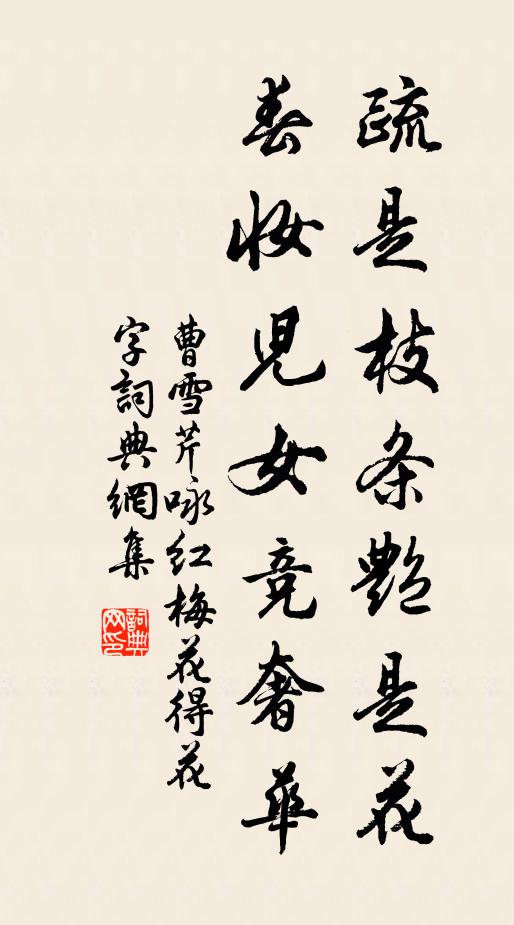 疏是枝条艷是花
春妝児女竞奢華
曹雪芹咏红梅花得花
字詞典網集
詞典
网印